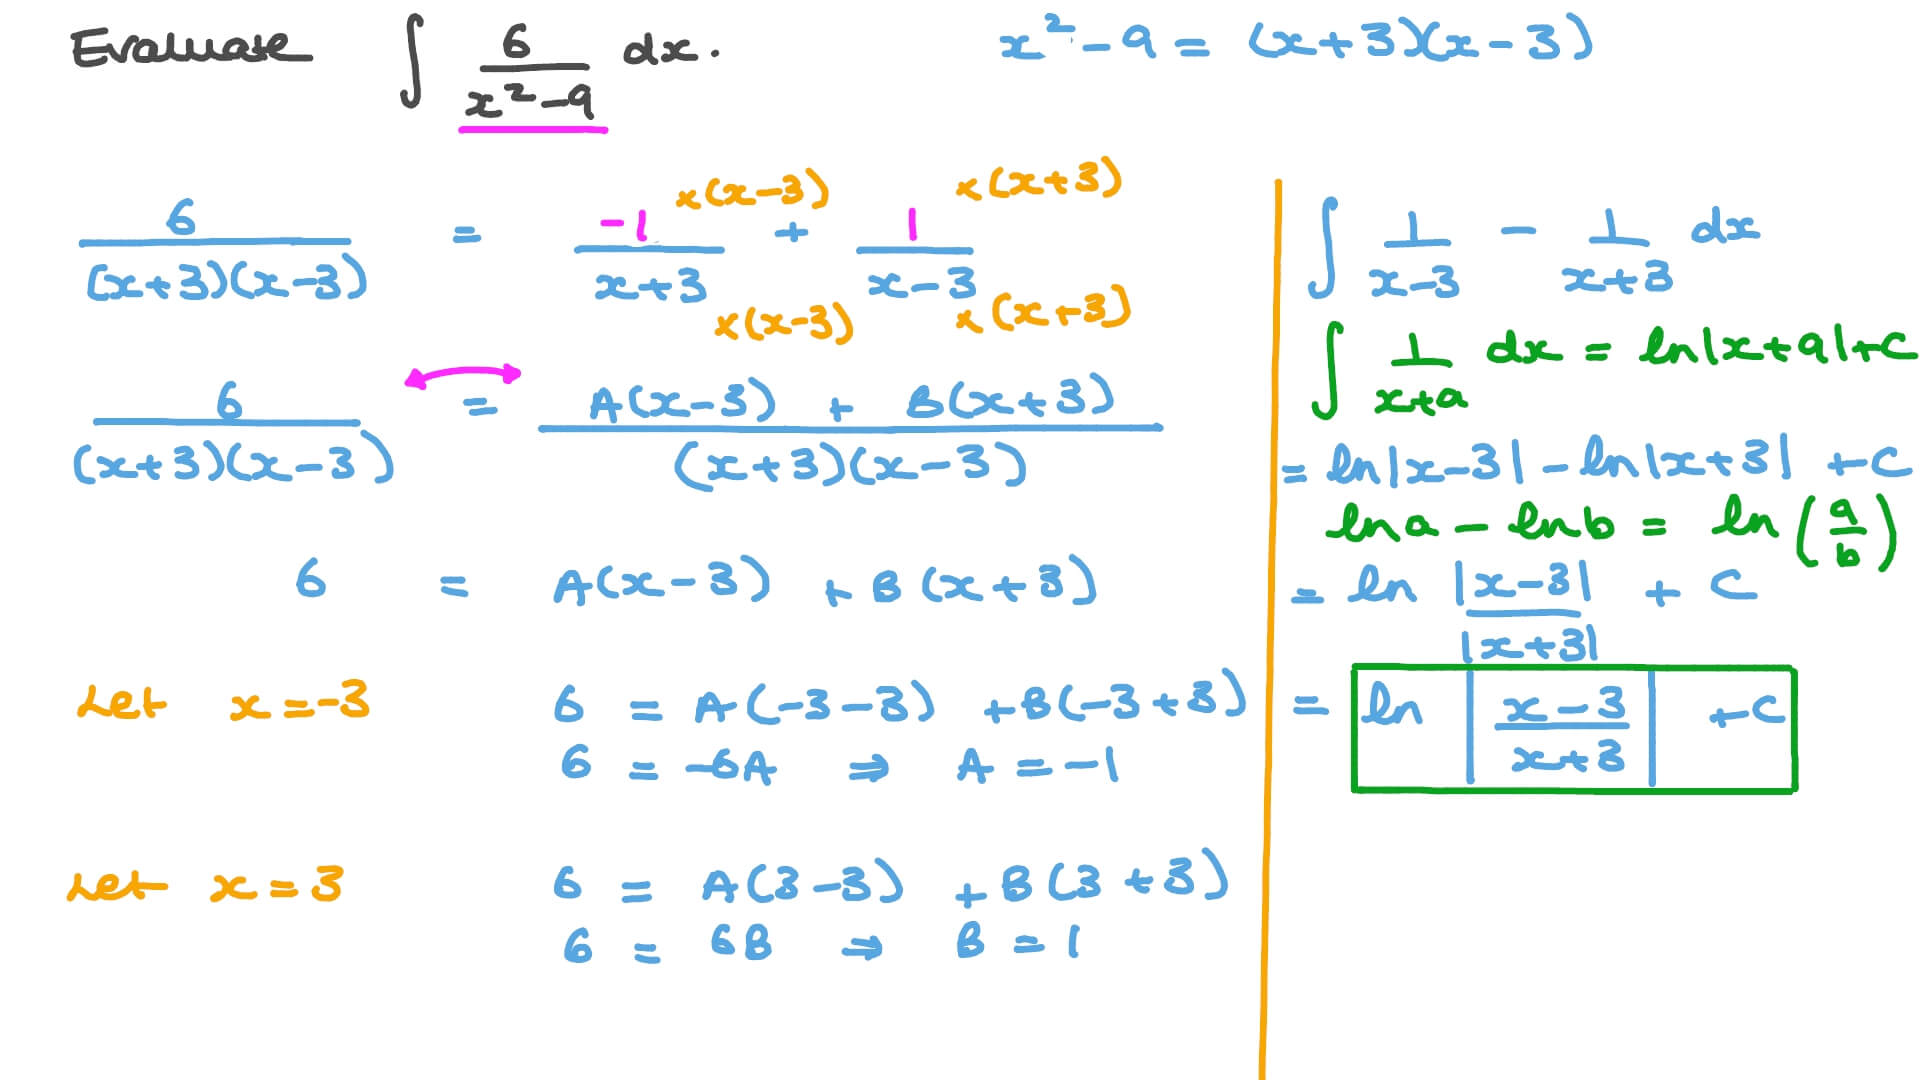 Evaluate ∫ 6/(x²-9) dx.
x²-9 = (x+3)(x-3)
6/((x+3)(x-3)) = -1/(x+3) ×(x-3)/×(x-3) + 1/(x-3) ×(x+3)/×(x+3)
6/((x+3)(x-3)) = (A(x-3) + B(x+3))/((x+3)(x-3))
6 = A(x-3) + B(x+3)
Let x=-3 6 = A(-3-3) +B(-3+3)
6 = -6A ⇒ A=-1
Let x=3 6 = A(3-3) +B(3+3)
6 = 6B ⇒ B=1
∫ 1/(x-3) - 1/(x+3) dx
∫ 1/(x+a) dx = ln|x+a|+c
= ln|x-3| - ln|x+3| +c
ln a - ln b = ln(a/b)
= ln |x-3|/|x+3| + c
= ln |(x-3)/(x+3)| +c